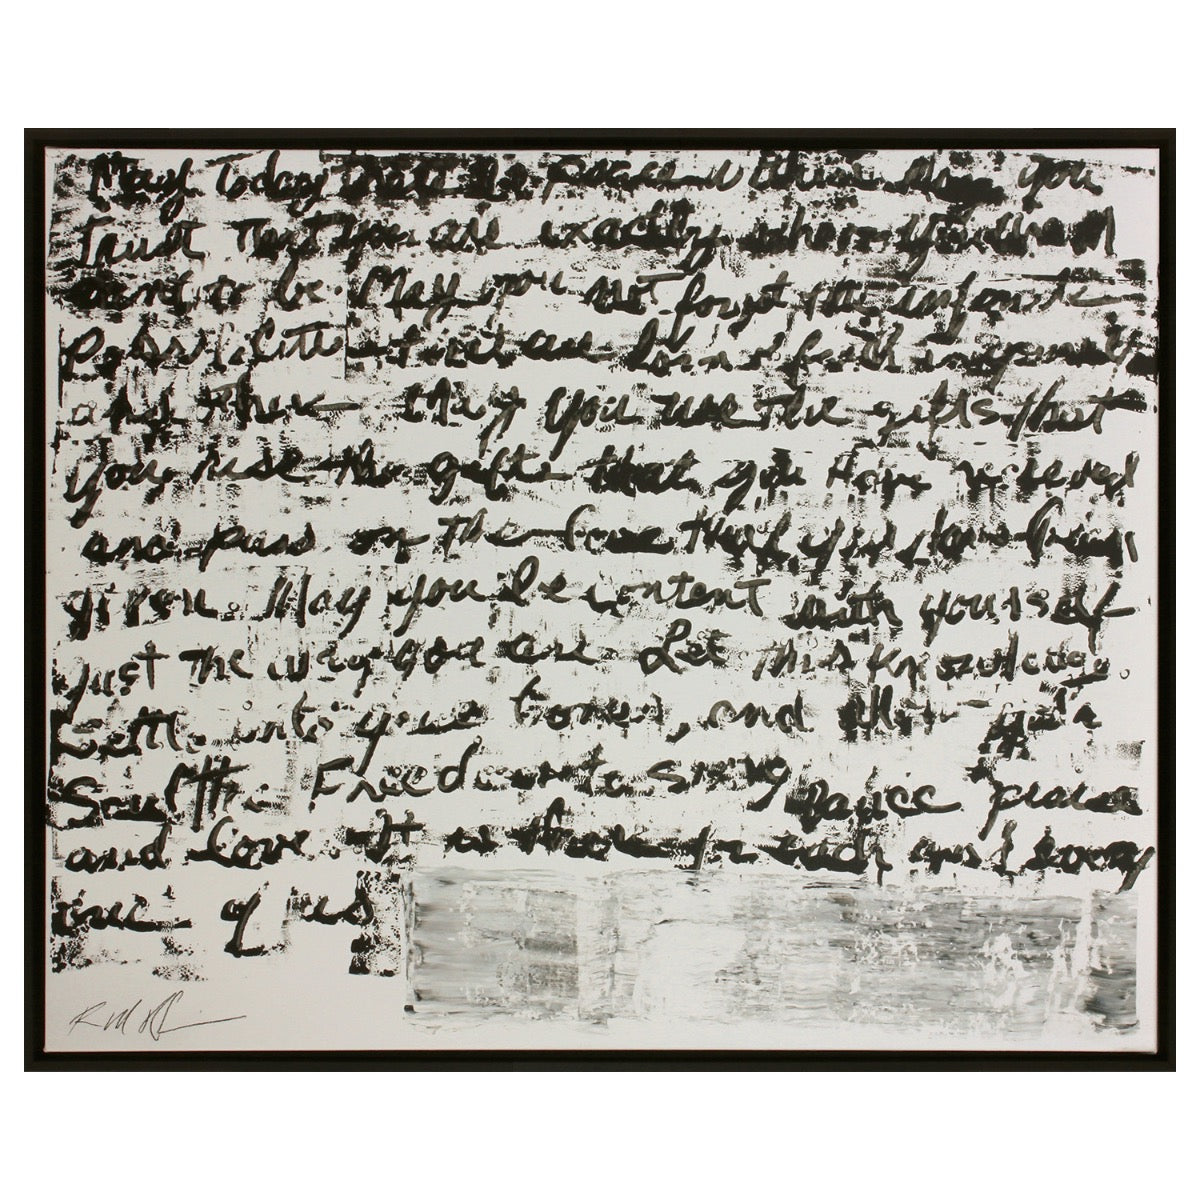 May Today there be Peace within. May you
Trust that you are exactly where you
ment to be. May you not forget the infinite
Possibilities that are born of faith in yourself
and others May you use the gifts that
you use the gifts that you have recieved
and pass on the love that you have been
given. May you be content with yourself
just the way you are. Let this knowledge
Settle into your bones, and allow your
Soul the Freedom to sing dance praise
and love. It is there for each and every
one of us